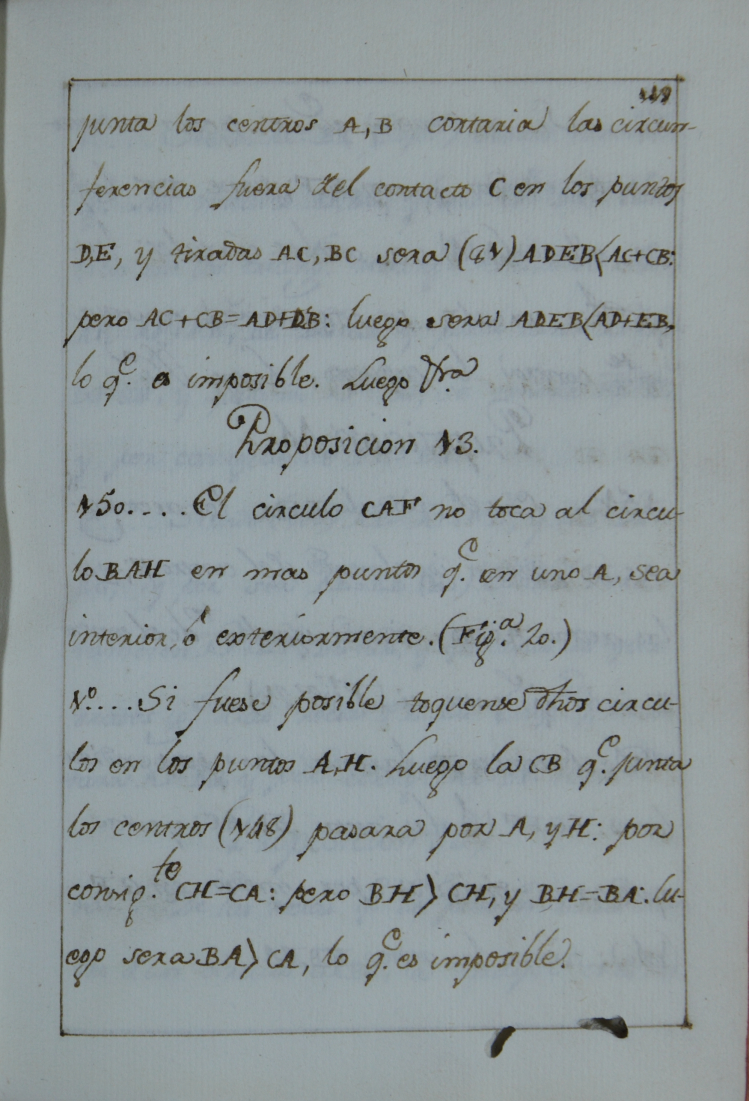 junta los centros A, B cortaria las circun-
ferencias fuera del contacto C en los puntos
D,E, y tiradas AC, BC sera (81) ADEB<AC+CB:
pero AC+CB=AD+DB: luego sera ADEB<AD+EB,
lo q.e es imposible. Luego
Proposicion 13.
150.... El circulo CAF no toca al circu-
lo BAH en mas puntos q.e en uno A, sea
interior, ó exteriormente. (Fig.a 20.)
Si fuese posible toquense dhos circu-
los en los puntos A, H. Luego la CB q.e junta
los centros (148) pasara por A, y H: por
consig.te CH=CA: pero BH>CH, y BH=BA: lu-
ego sera BA>CA, lo q.e es imposible.